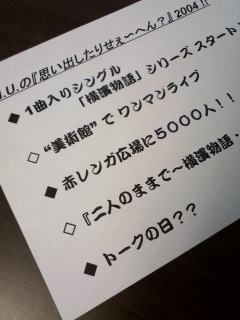 I.U.の『思い出したりせぇーへん?』2004!!
◆ 1曲入りシングル
「横濱物語」シリーズ スタート
◇ "美術館" で ワンマンライブ
◆ 赤レンガ広場に5000人!!
◇ 『二人のままで~横濱物語.
◆ トークの日??